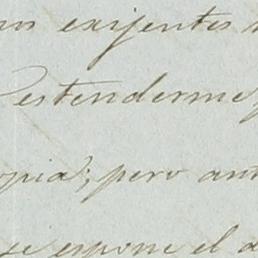 exijentes
estenderme
opia; pero ant
se espone el a